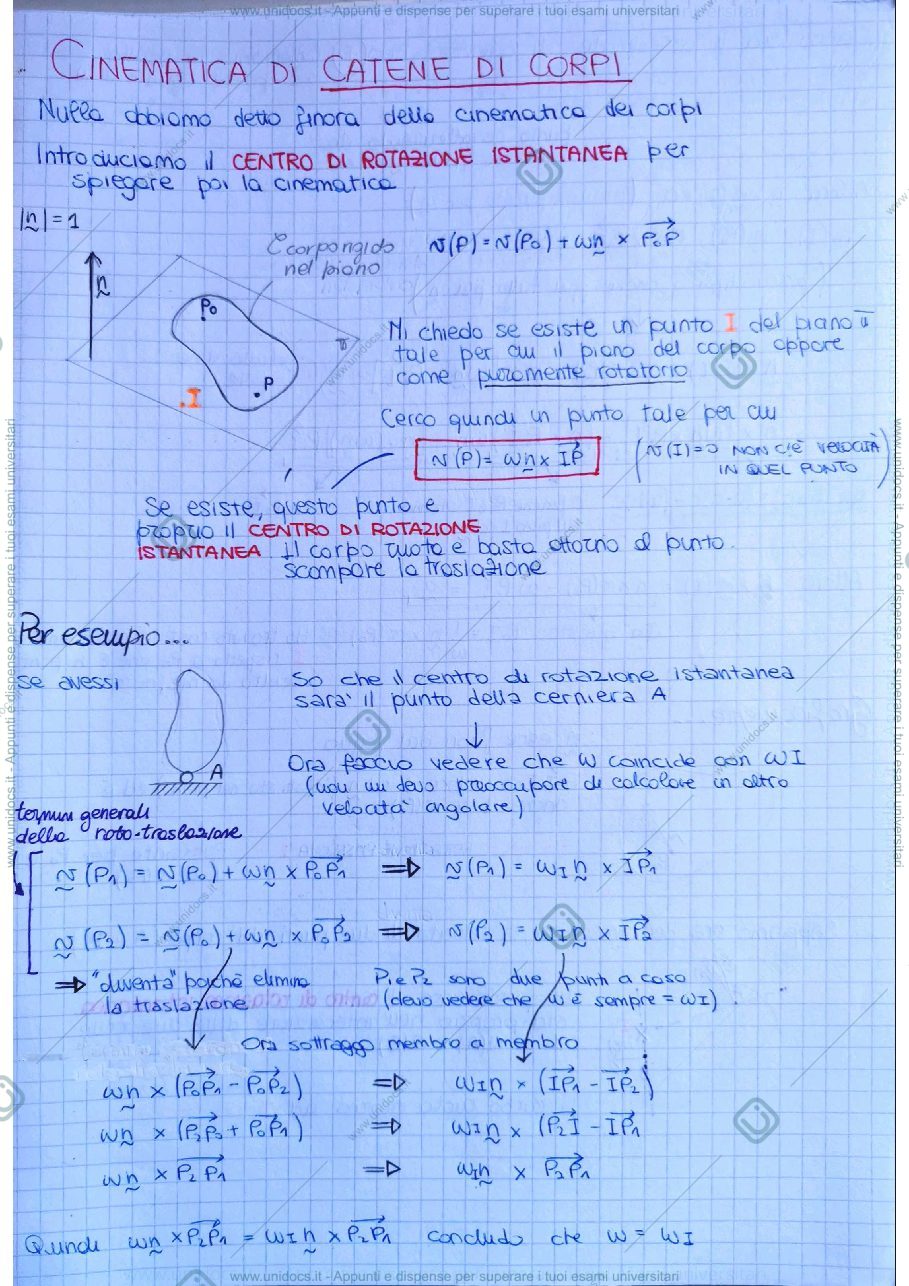 www.unidocs.it - Appunti e dispense per superare i tuoi esami universitari
CINEMATICA DI CATENE DI CORPI
Nulla abbiamo detto finora della cinematica dei corpi
Introduciamo il CENTRO DI ROTAZIONE ISTANTANEA per
spiegare poi la cinematica
|n| = 1
C corpo rigido
nel piano
v(P) = v(P₀) + ωn × P₀P
n
P₀
P
.I
π
Mi chiedo se esiste un punto I del piano π
tale per cui il piano del corpo appare
come puramente rotatorio
Cerco quindi un punto tale per cui
v(P) = ωn × IP
(v(I)=0 NON C'È VELOCITÀ
IN QUEL PUNTO)
Se esiste, questo punto è
proprio il CENTRO DI ROTAZIONE
ISTANTANEA Il corpo ruota e basta attorno al punto.
scompare la traslazione
Per esempio...
se avessi
So che il centro di rotazione istantanea
sarà il punto della cerniera A
A
↓
Ora faccio vedere che ω coincide con ωI
(non mi devo preoccupare di calcolare un'altra
velocità angolare)
termini generali
della roto-traslazione
v(P₁) = v(P₀) + ωn × P₀P₁ ⇒ v(P₁) = ωI n × IP₁
v(P₂) = v(P₀) + ωn × P₀P₂ ⇒ v(P₂) = ωI n × IP₂
⇒ "diventa" poichè elimino
la traslazione
P₁ e P₂ sono due punti a caso
(devo vedere che ω è sempre = ωI)
Ora sottraggo membro a membro
ωn × (P₀P₁ - P₀P₂) ⇒ ωI n × (IP₁ - IP₂)
ωn × (P₂P₀ + P₀P₁) ⇒ ωI n × (P₂I - IP₁
ωn × P₂P₁ ⇒ ωI n × P₂P₁
Quindi ωn × P₂P₁ = ωI n × P₂P₁ concludo che ω = ωI
www.unidocs.it - Appunti e dispense per superare i tuoi esami universitari